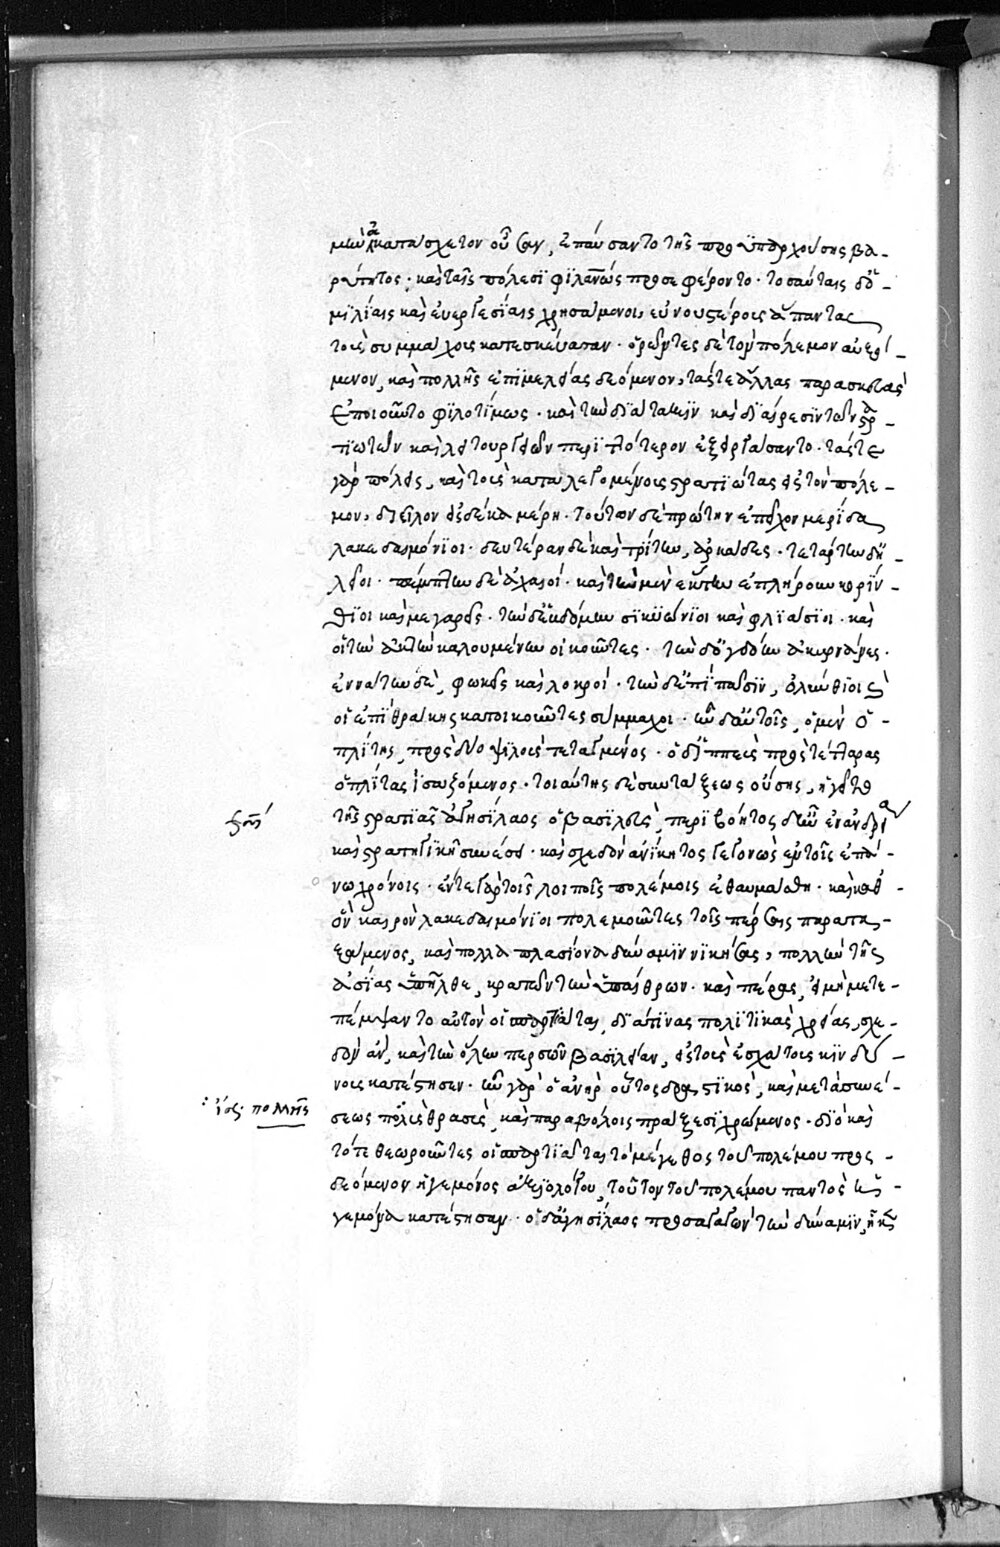 μὴν ἀκατάσχετον οὖσαν, ἐπαύσαντο τῆς προϋπαρχούσης βα-
ρύτητος· καὶ ταῖς πόλεσι φιλανως προσεφέροντο· τοσαύταις δὲ ὁ-
μιλίαις καὶ εὐεργεσίαις χρησάμενοι, εὐνουστέρους ἅπαντας
τοὺς συμμάχους κατεσκεύασαν· ὁρῶντες δὲ τὸν πόλεμον αὐξό-
μενον, καὶ πολλῆς ἐπιμελείας δεόμενον, τάς τε ἄλλας παρασκευὰς
ἐποιοῦντο φιλοτίμως· καὶ τὴν διάταξιν καὶ διαίρεσιν τῶν στρα-
τιωτῶν καὶ λειτουργειῶν περιττότερον ἐξειργάσαντο· τάς τε
γὰρ πόλεις, καὶ τοὺς καταλεγομένους στρατιώτας εἰς τὸν πόλε-
μον, διεῖλον εἰς δέκα μέρη· τούτων δὲ πρώτην ἐπεῖχον μερίδα
λακεδαιμόνιοι· δευτέραν δὲ καὶ τρίτην, ἀρκάδες· τετάρτην δὲ ἠ-
λεῖοι· πέμπτην δὲ ἀχαιοί· καὶ τὴν μὲν ἕκτην ἐπλήρουν κορίν-
θιοι καὶ μεγαρεῖς· τὴν δὲ ἑβδόμην σικυώνιοι καὶ φλιάσιοι· καὶ
οἱ τὴν ἀκτὴν καλουμένην οἰκοῦντες· τὴν δὲ ὀγδόην ἀκαρνᾶνες·
ἐννάτην δὲ, φωκεῖς καὶ λοκροί· τὴν δὲ ἐπὶ πᾶσιν, ὀλύνθιοι καὶ
οἱ ἐπὶ θράκης κατοικοῦντες σύμμαχοι· ἦν δ' αὐτοῖς, ὁ μὲν ὁ-
πλίτης, πρὸς δύο ψιλοὺς τεταγμένος· ὁ δ' ἱππεὺς πρὸς τέτταρας
ὁπλίτας ἰσαζόμενος· τοιαύτης δὲ συντάξεως οὔσης, ἡγεῖτο
τῆς στρατιᾶς ἀγησίλαος ὁ βασιλεὺς, περιβόητος ὢν ἐν ἀνδρίᾳ
καὶ στρατηγικῇ συνέσει· καὶ σχεδὸν ἀνίκητος γεγονὼς ἐν τοῖς ἐπά-
νω χρόνοις· ἔν τε γὰρ τοῖς λοιποῖς πολέμοις ἐθαυμάσθη· καὶ καθ'
ὃν καιρὸν λακεδαιμόνιοι πολεμοῦντες τοῖς πέρσαις παραταξ-
άμενος, καὶ πολλαπλασίονα δύναμιν νικήσας, πολλὴν τῆς
ἀσίας ἐπῆλθε, κρατῶν τῶν ὑπαίθρων· καὶ πέρας, εἰ μὴ μετε-
πέμψαντο αὐτὸν οἱ σπαρτιᾶται, διά τινας πολιτικὰς χρείας, σχε-
δὸν ἂν, καὶ τὴν ὅλην περσῶν βασιλείαν, εἰς τοὺς ἐσχάτους κινδύ-
νους κατέστησεν· ἦν γὰρ ὁ ἀνὴρ οὗτος δραστικὸς, καὶ μετὰ συνέ-
σεως πολλῆς θρασὺς, καὶ παραβόλοις πράξεσι χρώμενος· διὸ καὶ
τότε θεωροῦντες οἱ σπαρτιᾶται τὸ μέγεθος τοῦ πολέμου προσ-
δεόμενον ἡγεμόνος ἀξιολόγου, τοῦτον τοῦ πολέμου παντὸς ἡ-
γεμόνα κατέστησαν· ὁ δ' ἀγησίλαος προσαγαγὼν τὴν δύναμιν, ἧκεν
ἴσ. πολλῆς